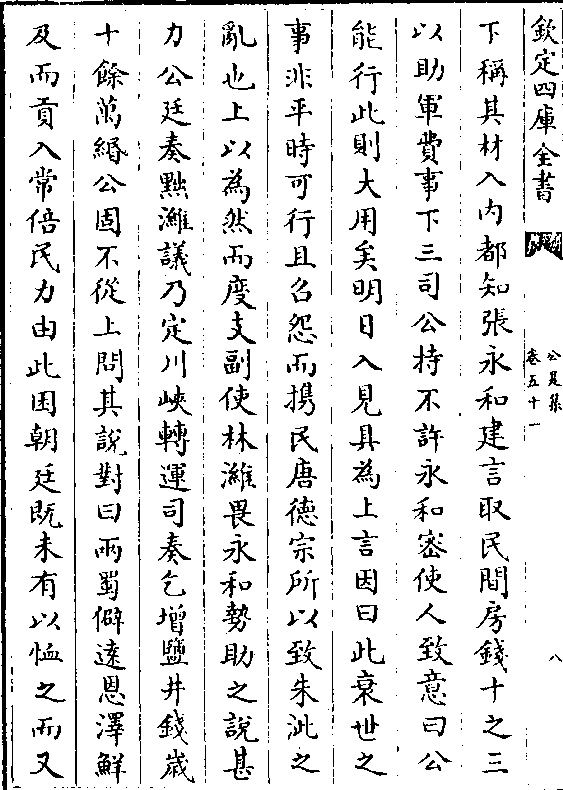 欽定四庫全書
公是集
卷五十一
八
下稱其材入内都知張永和建言取民間房錢十之三
以助軍費事下三司公持不許永和密使人致意曰公
能行此則大用矣明日入見具為上言因曰此衰世之
事非平時可行且召怨而攜民唐德宗所以致朱泚之
亂也上以為然而度支副使林濰畏永和勢助之説甚
力公廷奏黜濰議乃定川峽轉運司奏乞增鹽井錢歳
十餘萬緡公固不從上問其說對曰兩蜀僻逺恩澤鮮
及而貢入常倍民力由此困朝廷既未有以恤之而又